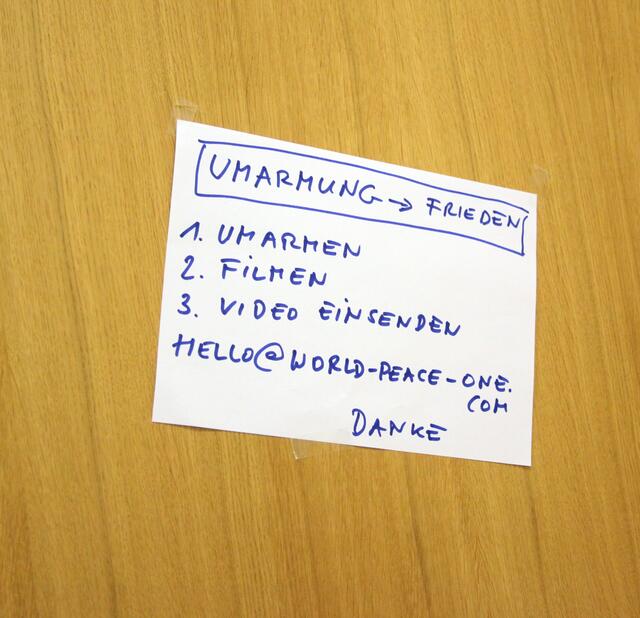 UMARMUNG → FRIEDEN
1. UMARMEN
2. FILMEN
3. VIDEO EINSENDEN
HELLO@WORLD-PEACE-ONE.
COM
DANKE